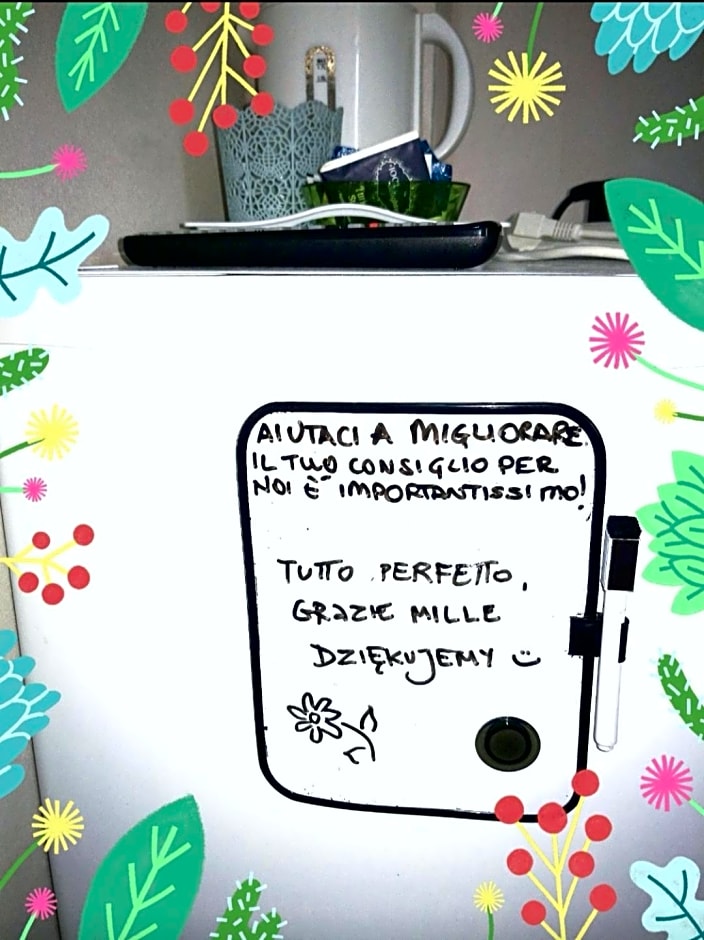 AIUTACI A MIGLIORARE
IL TUO CONSIGLIO PER
NOI È IMPORTANTISSIMO!
TUTTO PERFETTO,
GRAZIE MILLE
DZIĘKUJEMY